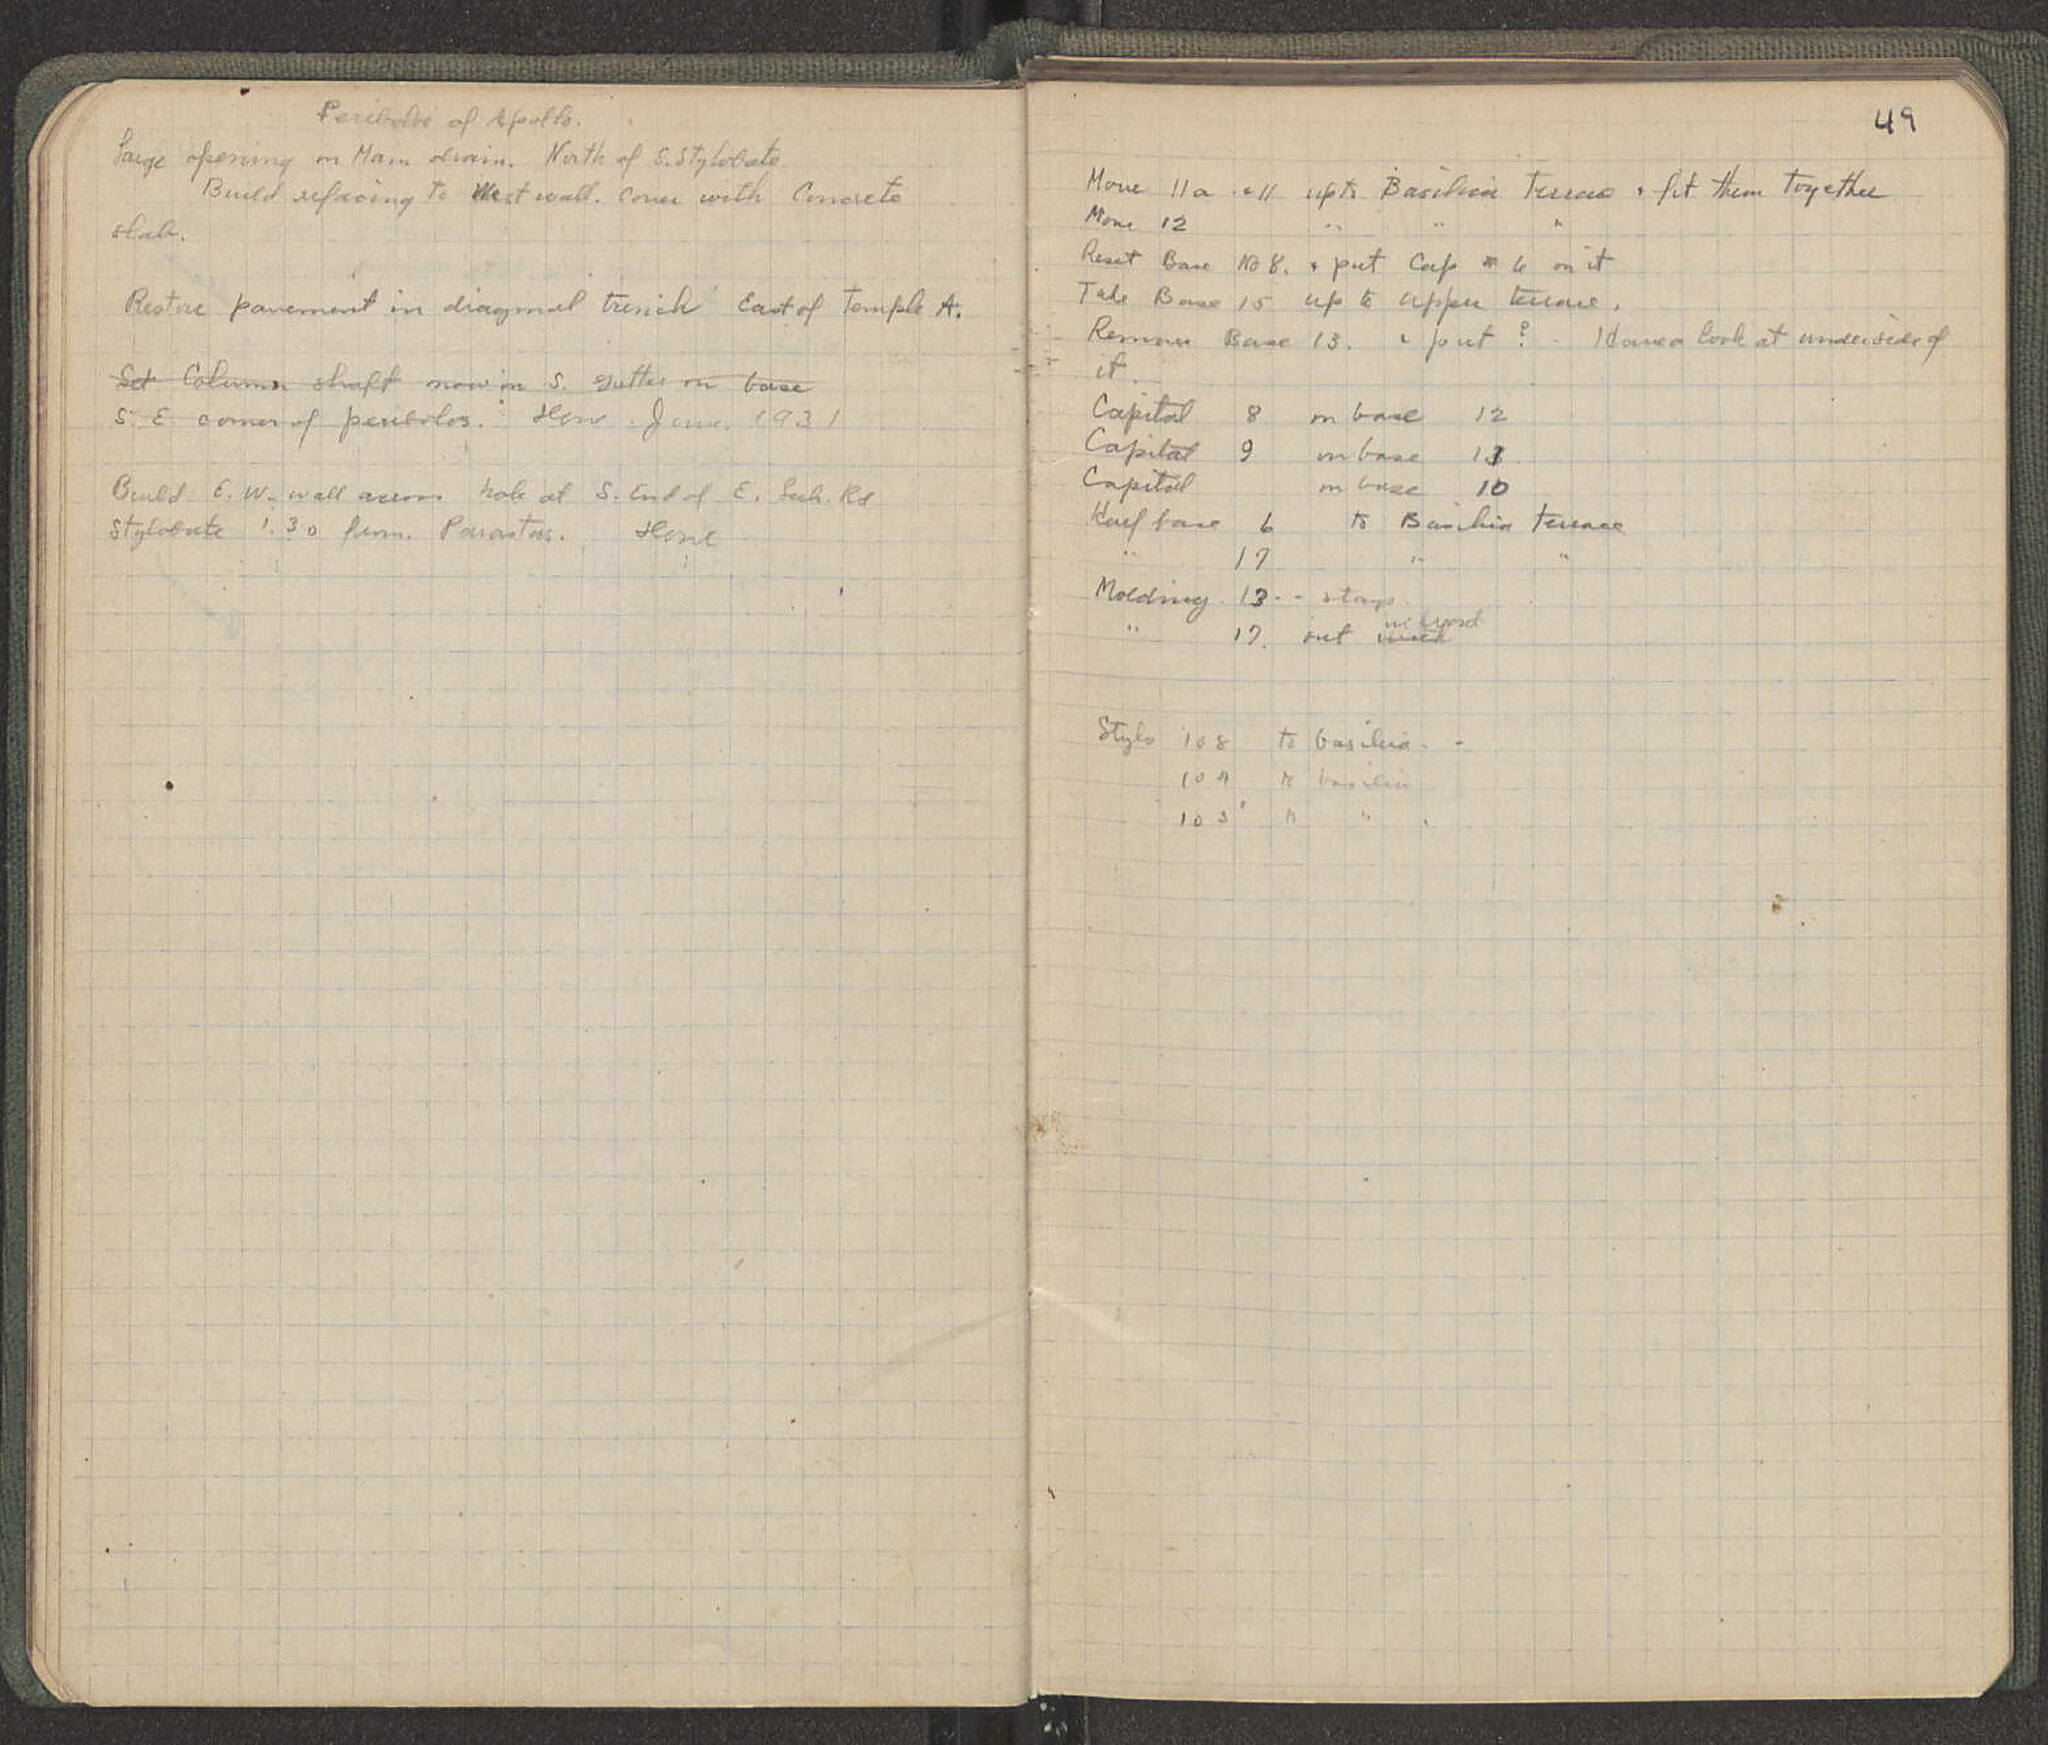 Peribolos of Apollo.
Large opening on Main drain. North of S. Stylobate
Build refacing to West wall. Cover with Concrete
slab.
Restore pavement in diagonal trench East of Temple A.
Set Column shaft now in S. gutter on base
S. E corner of peribolos. June. 1931
Build E. W. wall across hole at S. End of E. Lech. Rd
Stylobate 1.30 from. Parastas.
49
Move 11a & 11 up to Basilica Terrace & fit them together
Move 12 " " "
Reset Base No 8. & put Cap # 6 on it
Take Base 15 up to upper terrace.
Remove Base 13. & put ? - Have a look at underside of
it.
Capital 8 on base 12
Capital 9 on base 11
Capital on base 10
Half base 6 to Basilica Terrace
" 17 " "
Molding 13 - - stays
" 17. out in yard
Stylo 108 to basilica. -
104 to basilica
103 to "